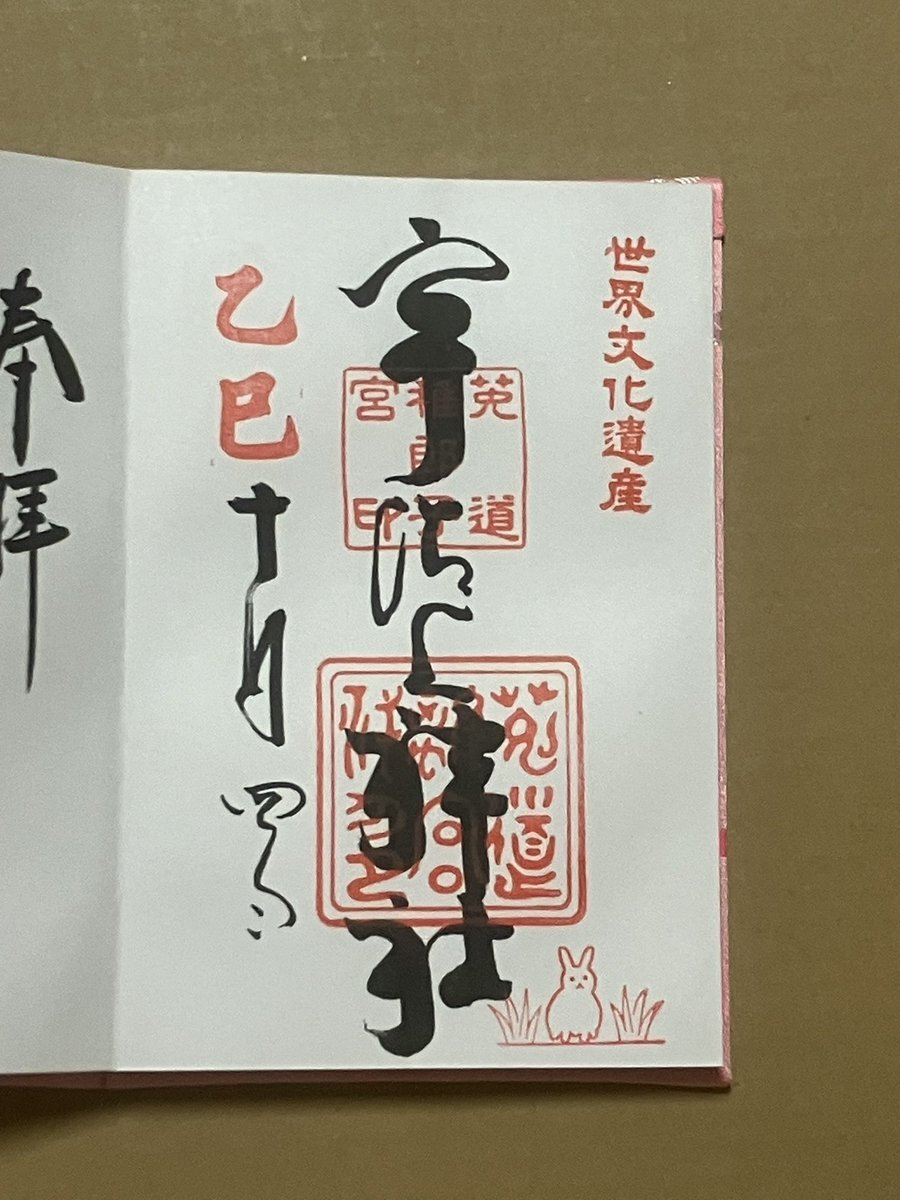 世界文化遺産
宇治上神社
菟道
稚郎子
宮印
乙巳十月四日
奉拝